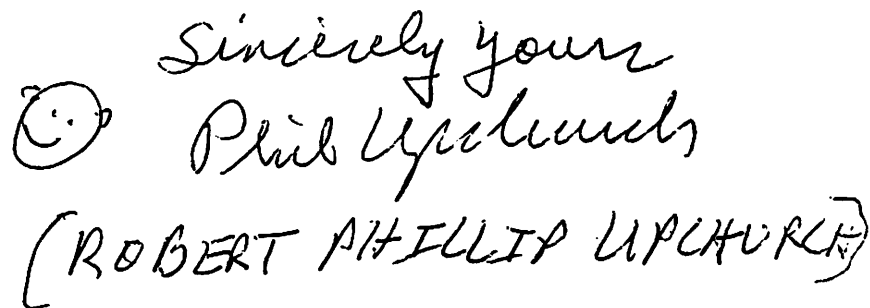 Sincerely yours
Phil Upchurch
(ROBERT PHILLIP UPCHURCH)